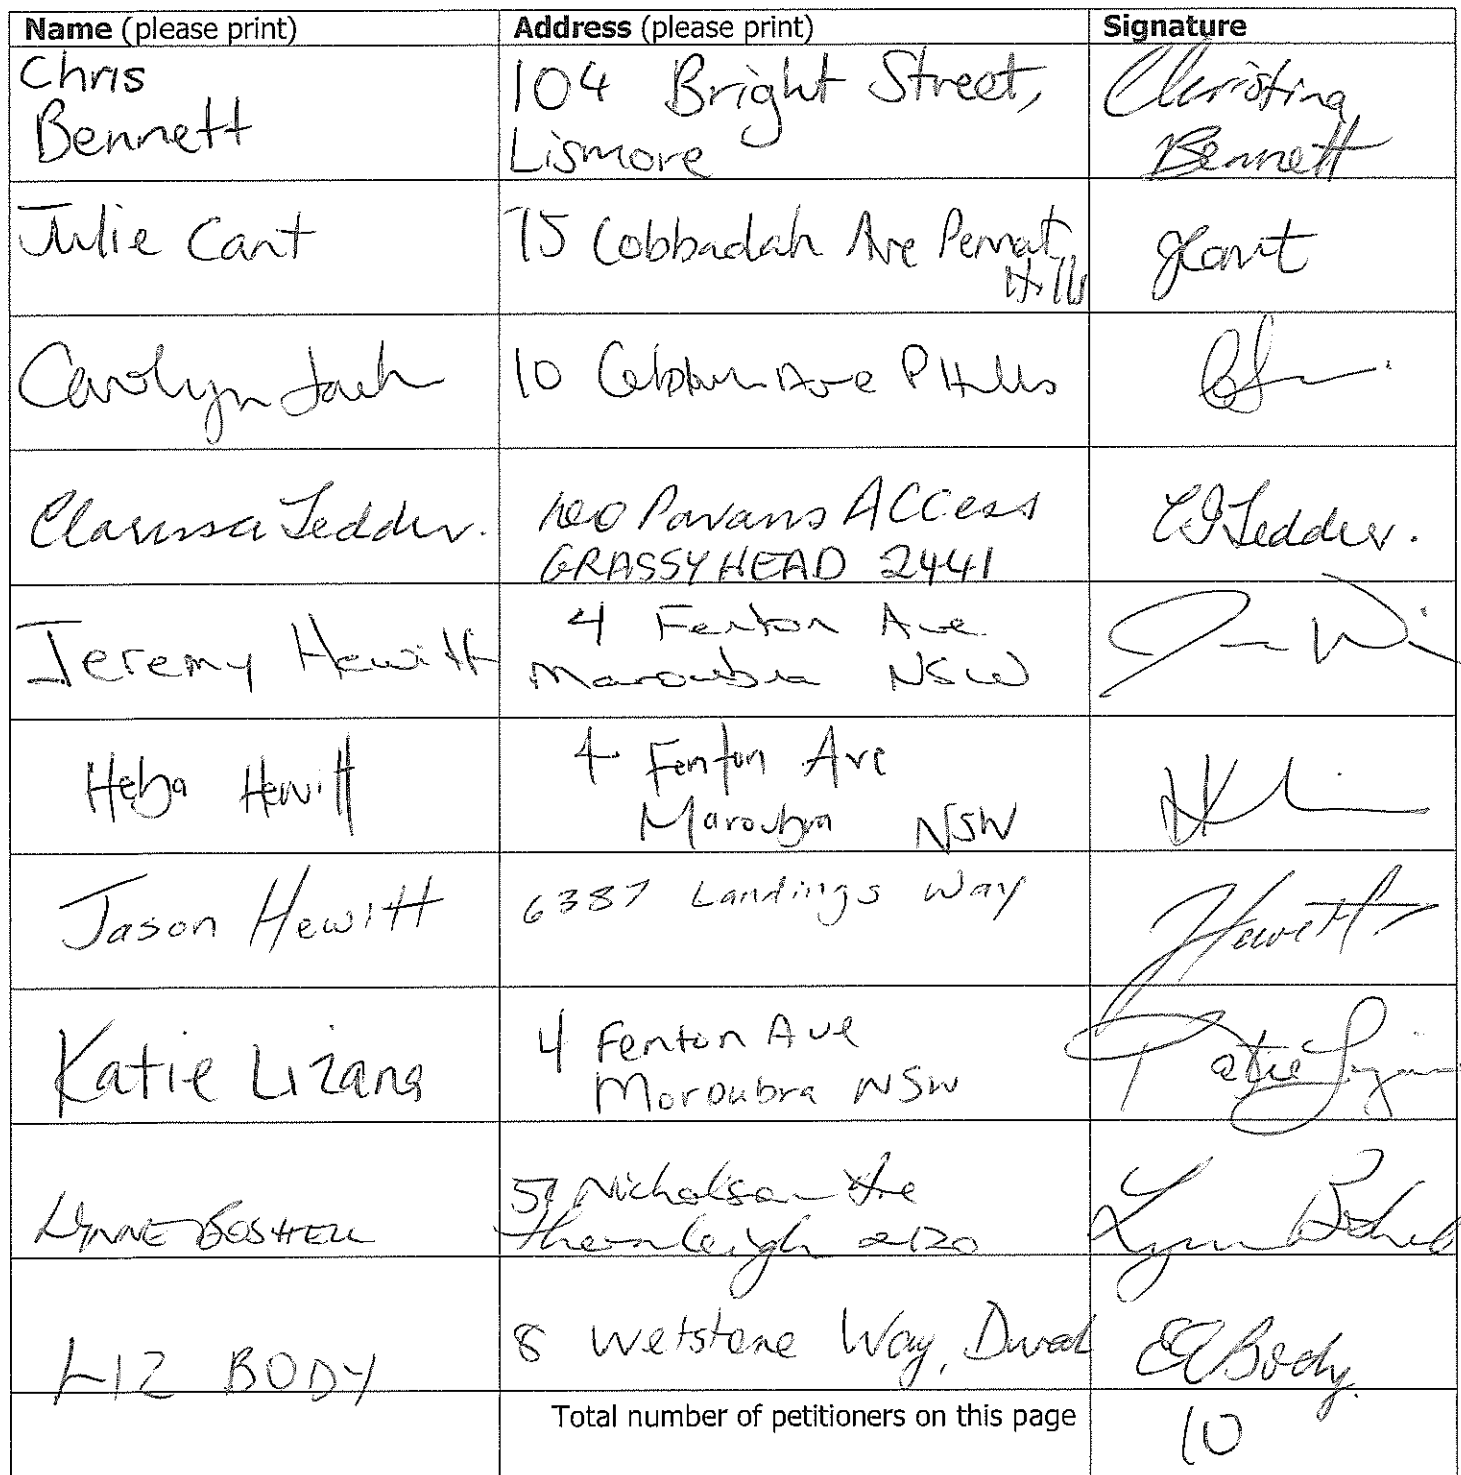 Name (please print) Address (please print) Signature
Chris
Bennett
104 Bright Street,
Lismore
Christina
Bennett
Julie Cant
75 Cobbadah Ave Pennant
Hills
JCant
Carolyn
10 Ave P Hills
Clarissa Tedder.
100 Pavans ACCess
GRASSY HEAD 2441
Tedder.
Jeremy Hewitt
4 Fenton Ave
Maroubra NSW
Heba Hewitt
4 Fenton Ave
Maroubra NSW
Jason Hewitt
6387 Landings Way
Hewitt
Katie Lizana
4 Fenton Ave
Moroubra NSW
Katie
LYNNE BOSHELL
Nicholson Ave
Thornleigh 2120
Lynne Boshell
LIZ BODY
8 Wetstone Way, Dural
EABody.
Total number of petitioners on this page 10